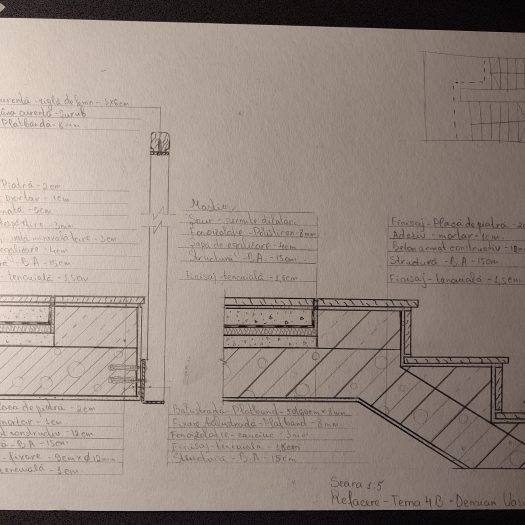 curentă - riglă de lemn - 5x5cm
mâna curentă - Șurub
Platbandă - 8mm
Piatră - 2cm
mortar - 1cm
- 5cm
- 3mm
minerală
egalizare - 4cm
B.A - 15cm
tencuială - 1,5cm
Mastic
Șnur - permite dilatări
Fonoizolație - Polistiren - 8mm
Șapă de egalizare - 4cm
Structură - B.A - 15cm
Finisaj - tencuială - 1,5cm
Finisaj - Placă de piatră - 2c
Adeziv - mortar - 1cm
Beton armat constructiv - 12cm
Structură - B.A - 15cm
Finisaj - tencuială - 1,5cm
Placă de piatră - 2cm
mortar - 1cm
constructiv - 12cm
B.A - 15cm
fixare - 9cm x Ø 12mm
tencuială - 2cm
Balustradă - Platbandă - x 8mm
Fixare balustradă - Platbandă - 8mm
Fonoizolație - cauciuc - 3mm
Finisaj - tencuială - 1,5cm
Structură - B.A - 15cm
Scara 1:5
Refacere - Tema 4B - Demian